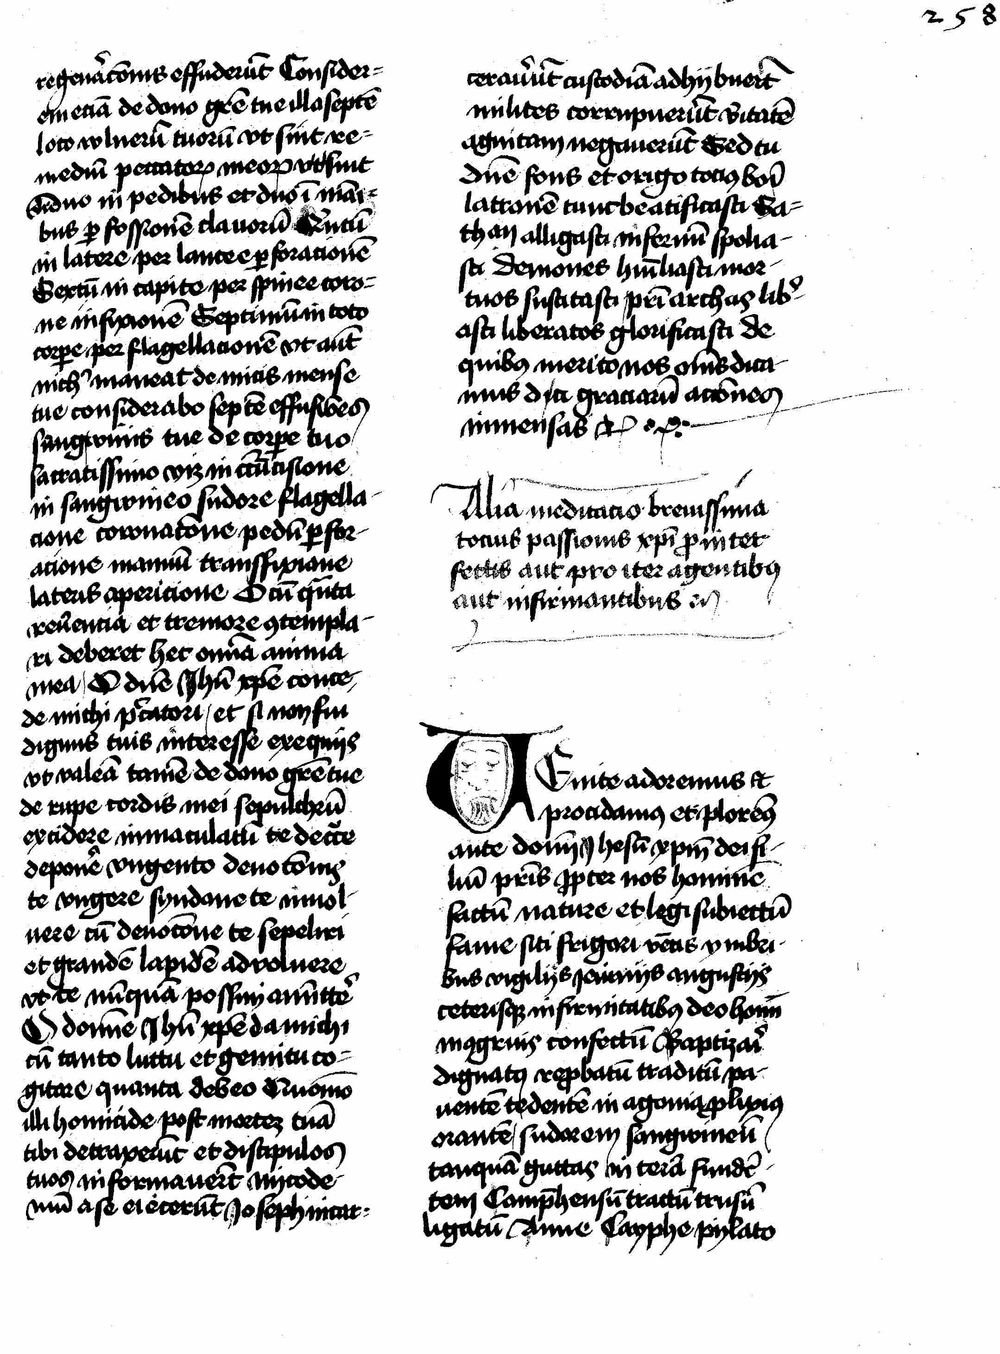 258
regenerac̄onis effuderūt Consider-
em eciā de dono grē tue illa septē
loca vulnerū tuorū vt sint re-
mediū peccatorꝝ meorꝝ vt sint
duo in pedibus et duo ī māi-
bus ꝑ fossionē clauorū Qintū
in latere per lancee ꝑforacionē
Sextū in capite per spinee coro-
ne infixionē Septimū in toto
corpore per flagellacionē vt aūt
nichˡ maneat de mētis mense
tue considerabo septē effusiōes
sangwinis tue de corpore tuo
sacratissimo viꝫ in circūcisione
in sangwineo sudore flagella-
cione coronac̄one pedū ꝑfor-
acione manuū transfixione
lateris apericione O cū quāta
reuerēncia et tremore ꝯtempla-
ri deberet hec omīa anima
mea O dūe Jhū xp̄e conce-
de michi pctatori et si non fui
dignus tuis interesse exequijs
vt valeā tamē de dono grē tue
de rupe cordis mei sepulchrū
excidere inmaculatū te
deponere vngento deuoc̄onis
te vngere syndone te inuol-
uere cū deuoc̄one te sepeliri
et grandē lapidē aduoluere
vt te nūquā possim amittere
O domine Jhū xp̄e da michi
cū tanto luctu et gemitu co-
gitare quanta debeo Quom̄o
illi homicide post mortez tuā
tibi detraxerūt et discipulos
tuos informauerūt nicode-
mū a se eiecerūt Joseph incar-
cerauerūt custodiā adhijbuerūt
milites corrupuerūt v̄itatē
agnitam negauerūt Sed tu
dn̄e fons et origo tociꝰ boī
latronē tunc beatificasti Sa-
than alligasti infernū spolia-
sti demones humliasti mor-
tuos suscitasti pr̄iarchas libꝰ-
asti liberatos glorificasti de
quibꝰ merito nos om̄s dica-
mus graciarū acc̄ones
inmensas
Alia meditacio breuissima
tocius passionis xp̄i ꝓ inter
fectis aut pro iter agentibꝰ
aut infirmantibus
Venite adoremus et
procidamꝰ et ploremꝰ
ante dominū Jhesū xp̄m dei fi-
liū pr̄is ꝓpter nos hominē
factū nature et legi subiectū
fame siti frigori ventis ymbri-
bus vigilijs ieiunijs angustijs
ceterisqꝫ infirmitatibꝰ deo homi
confectū Baptizari
dignatꝰ reꝓbatū traditū pa-
uentē tedentē in agonia ꝓlixiꝰ
orantē sudorem sangwineū
tanquā guttas in terrā funden-
tem Comp̄hensū tractū trusū
ligatū Anne Cayphe pylato